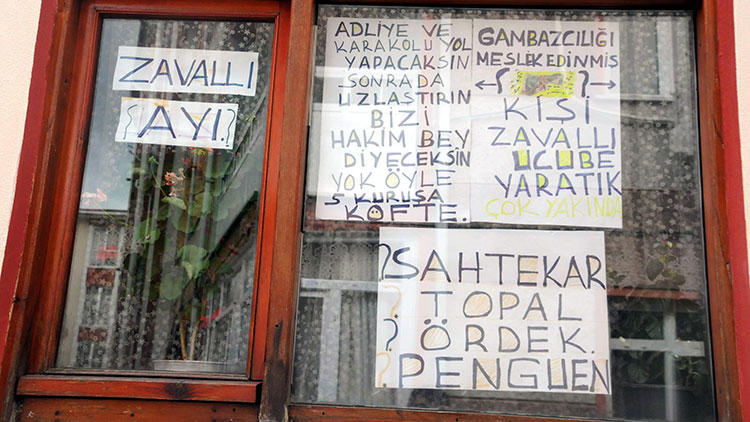 ZAVALLI
{AYI.}
ADLİYE VE
KARAKOLU YOL
YAPACAKSIN
SONRADA
UZLAŞTIRIN
BİZİ
HAKİM BEY
DİYECEKSİN
YOK ÖYLE
5 KURUŞA
KÖFTE.
GAMBAZCILIĞI
MESLEK EDİNMİŞ
KİŞİ
ZAVALLI
UCUBE
YARATIK
ÇOK YAKINDA
?SAHTEKAR
? TOPAL
? ÖRDEK.
?PENGUEN